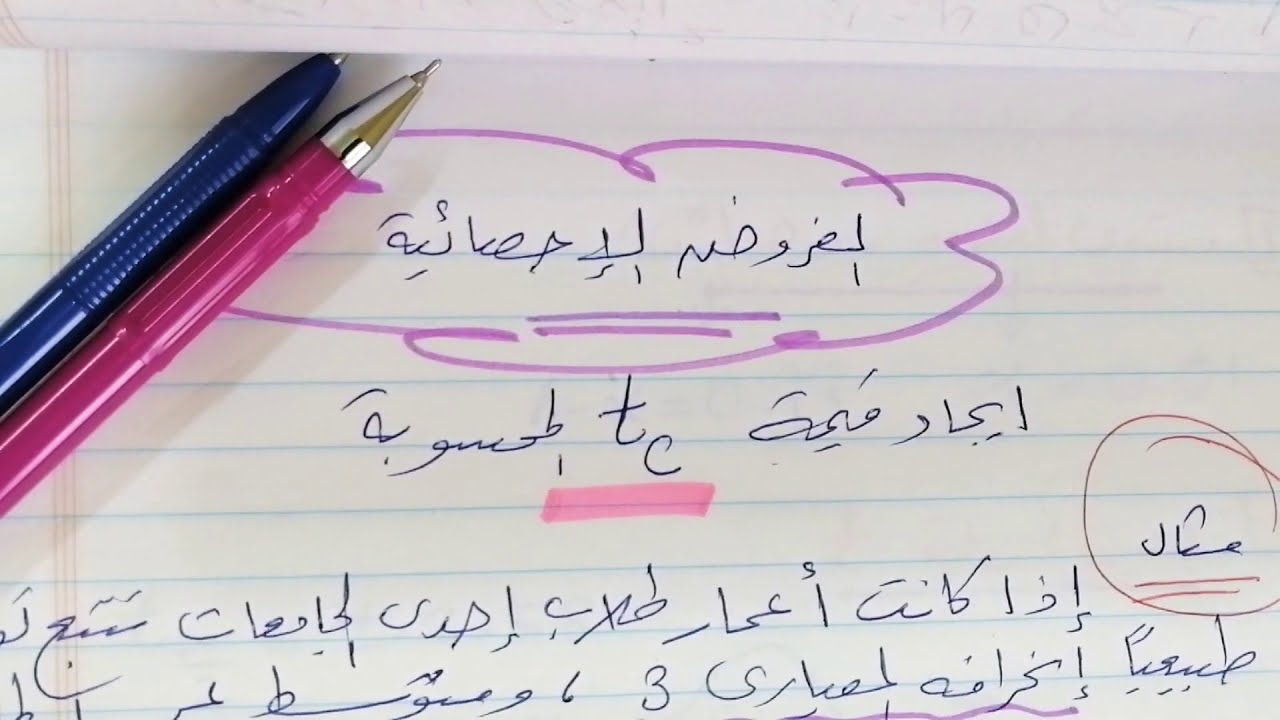 الفروض الإحصائية
ايجاد قيمة tc المحسوبة
مثال
إذا كانت أعمار طلاب إحدى الجامعات تتبع
طبيعياً إنحرافه المعيارى 3 ، ومتوسط عمر